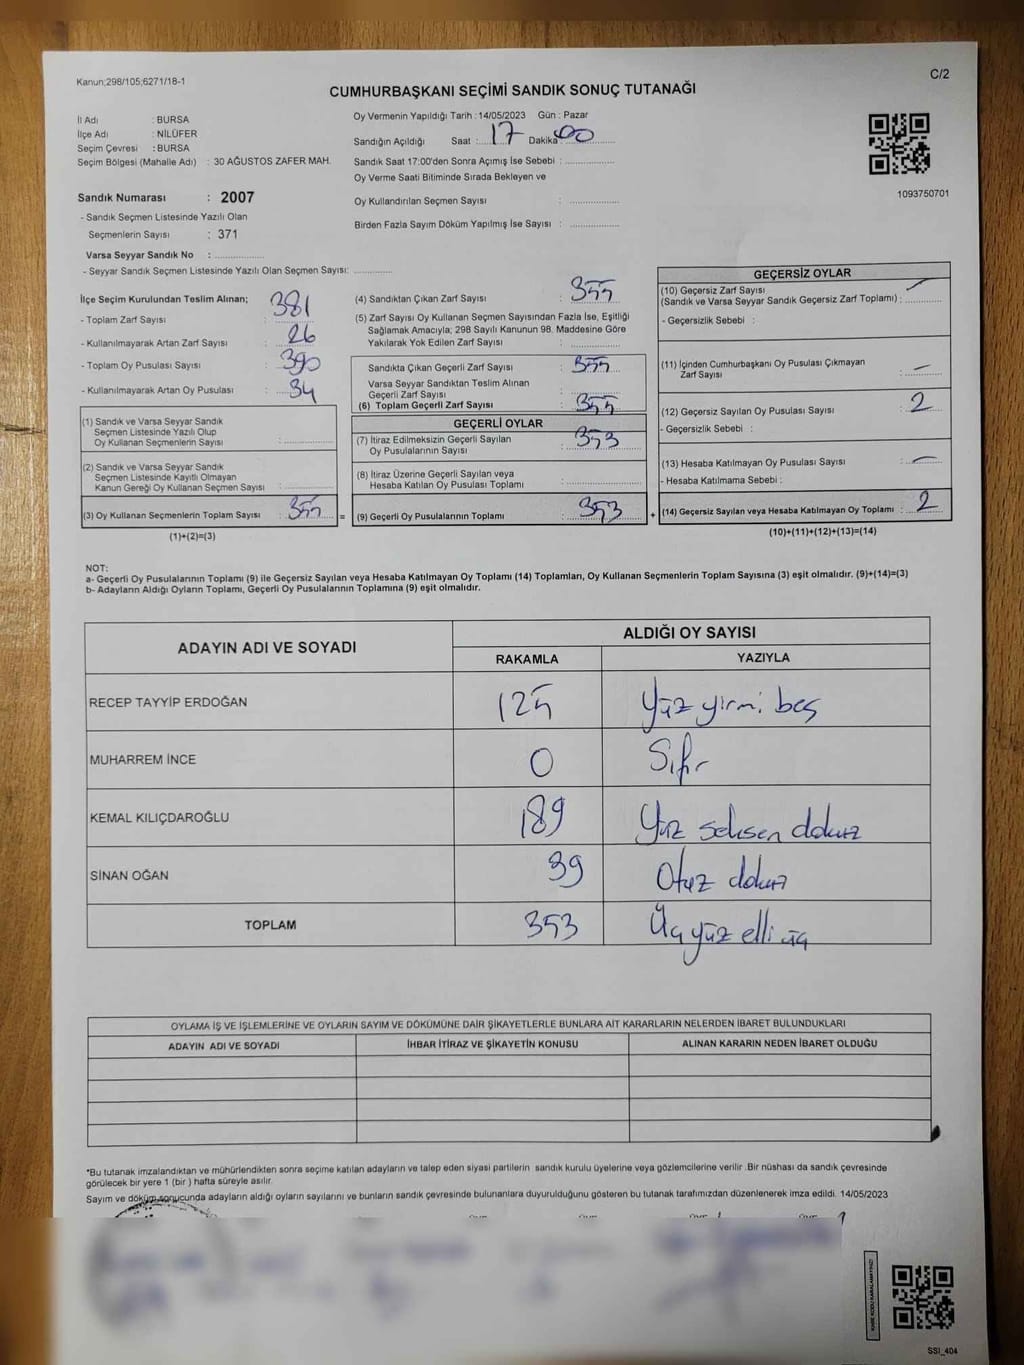 Kanun;298/105;6271/18-1
C/2
CUMHURBAŞKANI SEÇİMİ SANDIK SONUÇ TUTANAĞI
İl Adı : BURSA
İlçe Adı : NİLÜFER
Seçim Çevresi : BURSA
Seçim Bölgesi (Mahalle Adı) : 30 AĞUSTOS ZAFER MAH.
Sandık Numarası : 2007
- Sandık Seçmen Listesinde Yazılı Olan
Seçmenlerin Sayısı : 371
Varsa Seyyar Sandık No : ................
- Seyyar Sandık Seçmen Listesinde Yazılı Olan Seçmen Sayısı: ............
Oy Vermenin Yapıldığı Tarih : 14/05/2023 Gün : Pazar
Sandığın Açıldığı Saat :.... 17 Dakika 00
Sandık Saat 17:00'den Sonra Açımış İse Sebebi : ................
Oy Verme Saati Bitiminde Sırada Bekleyen ve
Oy Kullandırılan Seçmen Sayısı : ................
Birden Fazla Sayım Döküm Yapılmış İse Sayısı : ................
1093750701
İlçe Seçim Kurulundan Teslim Alınan;
- Toplam Zarf Sayısı : 381
- Kullanılmayarak Artan Zarf Sayısı : 26
- Toplam Oy Pusulası Sayısı : 390
- Kullanılmayarak Artan Oy Pusulası : 34
(1) Sandık ve Varsa Seyyar Sandık
Seçmen Listesinde Yazılı Olup
Oy Kullanan Seçmenlerin Sayısı : ................
(2) Sandık ve Varsa Seyyar Sandık
Seçmen Listesinde Kayıtlı Olmayan
Kanun Gereği Oy Kullanan Seçmen Sayısı : ................
(3) Oy Kullanan Seçmenlerin Toplam Sayısı : 355 =
(1)+(2)=(3)
(4) Sandıktan Çıkan Zarf Sayısı : 355
(5) Zarf Sayısı Oy Kullanan Seçmen Sayısından Fazla İse, Eşitliği
Sağlamak Amacıyla; 298 Sayılı Kanunun 98. Maddesine Göre
Yakılarak Yok Edilen Zarf Sayısı : ................
Sandıkta Çıkan Geçerli Zarf Sayısı : 355
Varsa Seyyar Sandıktan Teslim Alınan
Geçerli Zarf Sayısı : ................
(6) Toplam Geçerli Zarf Sayısı : 355
GEÇERLİ OYLAR
(7) İtiraz Edilmeksizin Geçerli Sayılan
Oy Pusulalarının Sayısı : 353
(8) İtiraz Üzerine Geçerli Sayılan veya
Hesaba Katılan Oy Pusulası Toplamı : ................
(9) Geçerli Oy Pusulalarının Toplamı : 353 +
GEÇERSİZ OYLAR
(10) Geçersiz Zarf Sayısı
(Sandık ve Varsa Seyyar Sandık Geçersiz Zarf Toplamı) : -
- Geçersizlik Sebebi :
(11) İçinden Cumhurbaşkanı Oy Pusulası Çıkmayan
Zarf Sayısı : -
(12) Geçersiz Sayılan Oy Pusulası Sayısı : 2
- Geçersizlik Sebebi :
(13) Hesaba Katılmayan Oy Pusulası Sayısı : -
- Hesaba Katılmama Sebebi :
(14) Geçersiz Sayılan veya Hesaba Katılmayan Oy Toplamı : 2
(10)+(11)+(12)+(13)=(14)
NOT:
a- Geçerli Oy Pusulalarının Toplamı (9) ile Geçersiz Sayılan veya Hesaba Katılmayan Oy Toplamı (14) Toplamları, Oy Kullanan Seçmenlerin Toplam Sayısına (3) eşit olmalıdır. (9)+(14)=(3)
b- Adayların Aldığı Oyların Toplamı, Geçerli Oy Pusulalarının Toplamına (9) eşit olmalıdır.
ADAYIN ADI VE SOYADI ALDIĞI OY SAYISI
RAKAMLA YAZIYLA
RECEP TAYYİP ERDOĞAN 125 Yüz yirmi beş
MUHARREM İNCE 0 Sıfır
KEMAL KILIÇDAROĞLU 189 Yüz seksen dokuz
SİNAN OĞAN 39 Otuz dokuz
TOPLAM 353 Üç yüz elli üç
OYLAMA İŞ VE İŞLEMLERİNE VE OYLARIN SAYIM VE DÖKÜMÜNE DAİR ŞİKAYETLERLE BUNLARA AİT KARARLARIN NELERDEN İBARET BULUNDUKLARI
ADAYIN ADI VE SOYADI İHBAR İTİRAZ VE ŞİKAYETİN KONUSU ALINAN KARARIN NEDEN İBARET OLDUĞU
*Bu tutanak imzalandıktan ve mühürlendikten sonra seçime katılan adayların ve talep eden siyasi partilerin sandık kurulu üyelerine veya gözlemcilerine verilir .Bir nüshası da sandık çevresinde
görülecek bir yere 1 (bir ) hafta süreyle asılır.
Sayım ve döküm sonucunda adayların aldığı oyların sayılarını ve bunların sandık çevresinde bulunanlara duyurulduğunu gösteren bu tutanak tarafımızdan düzenlenerek imza edildi. 14/05/2023
KARE KODU KARALAMAYINIZ!
SSI_404